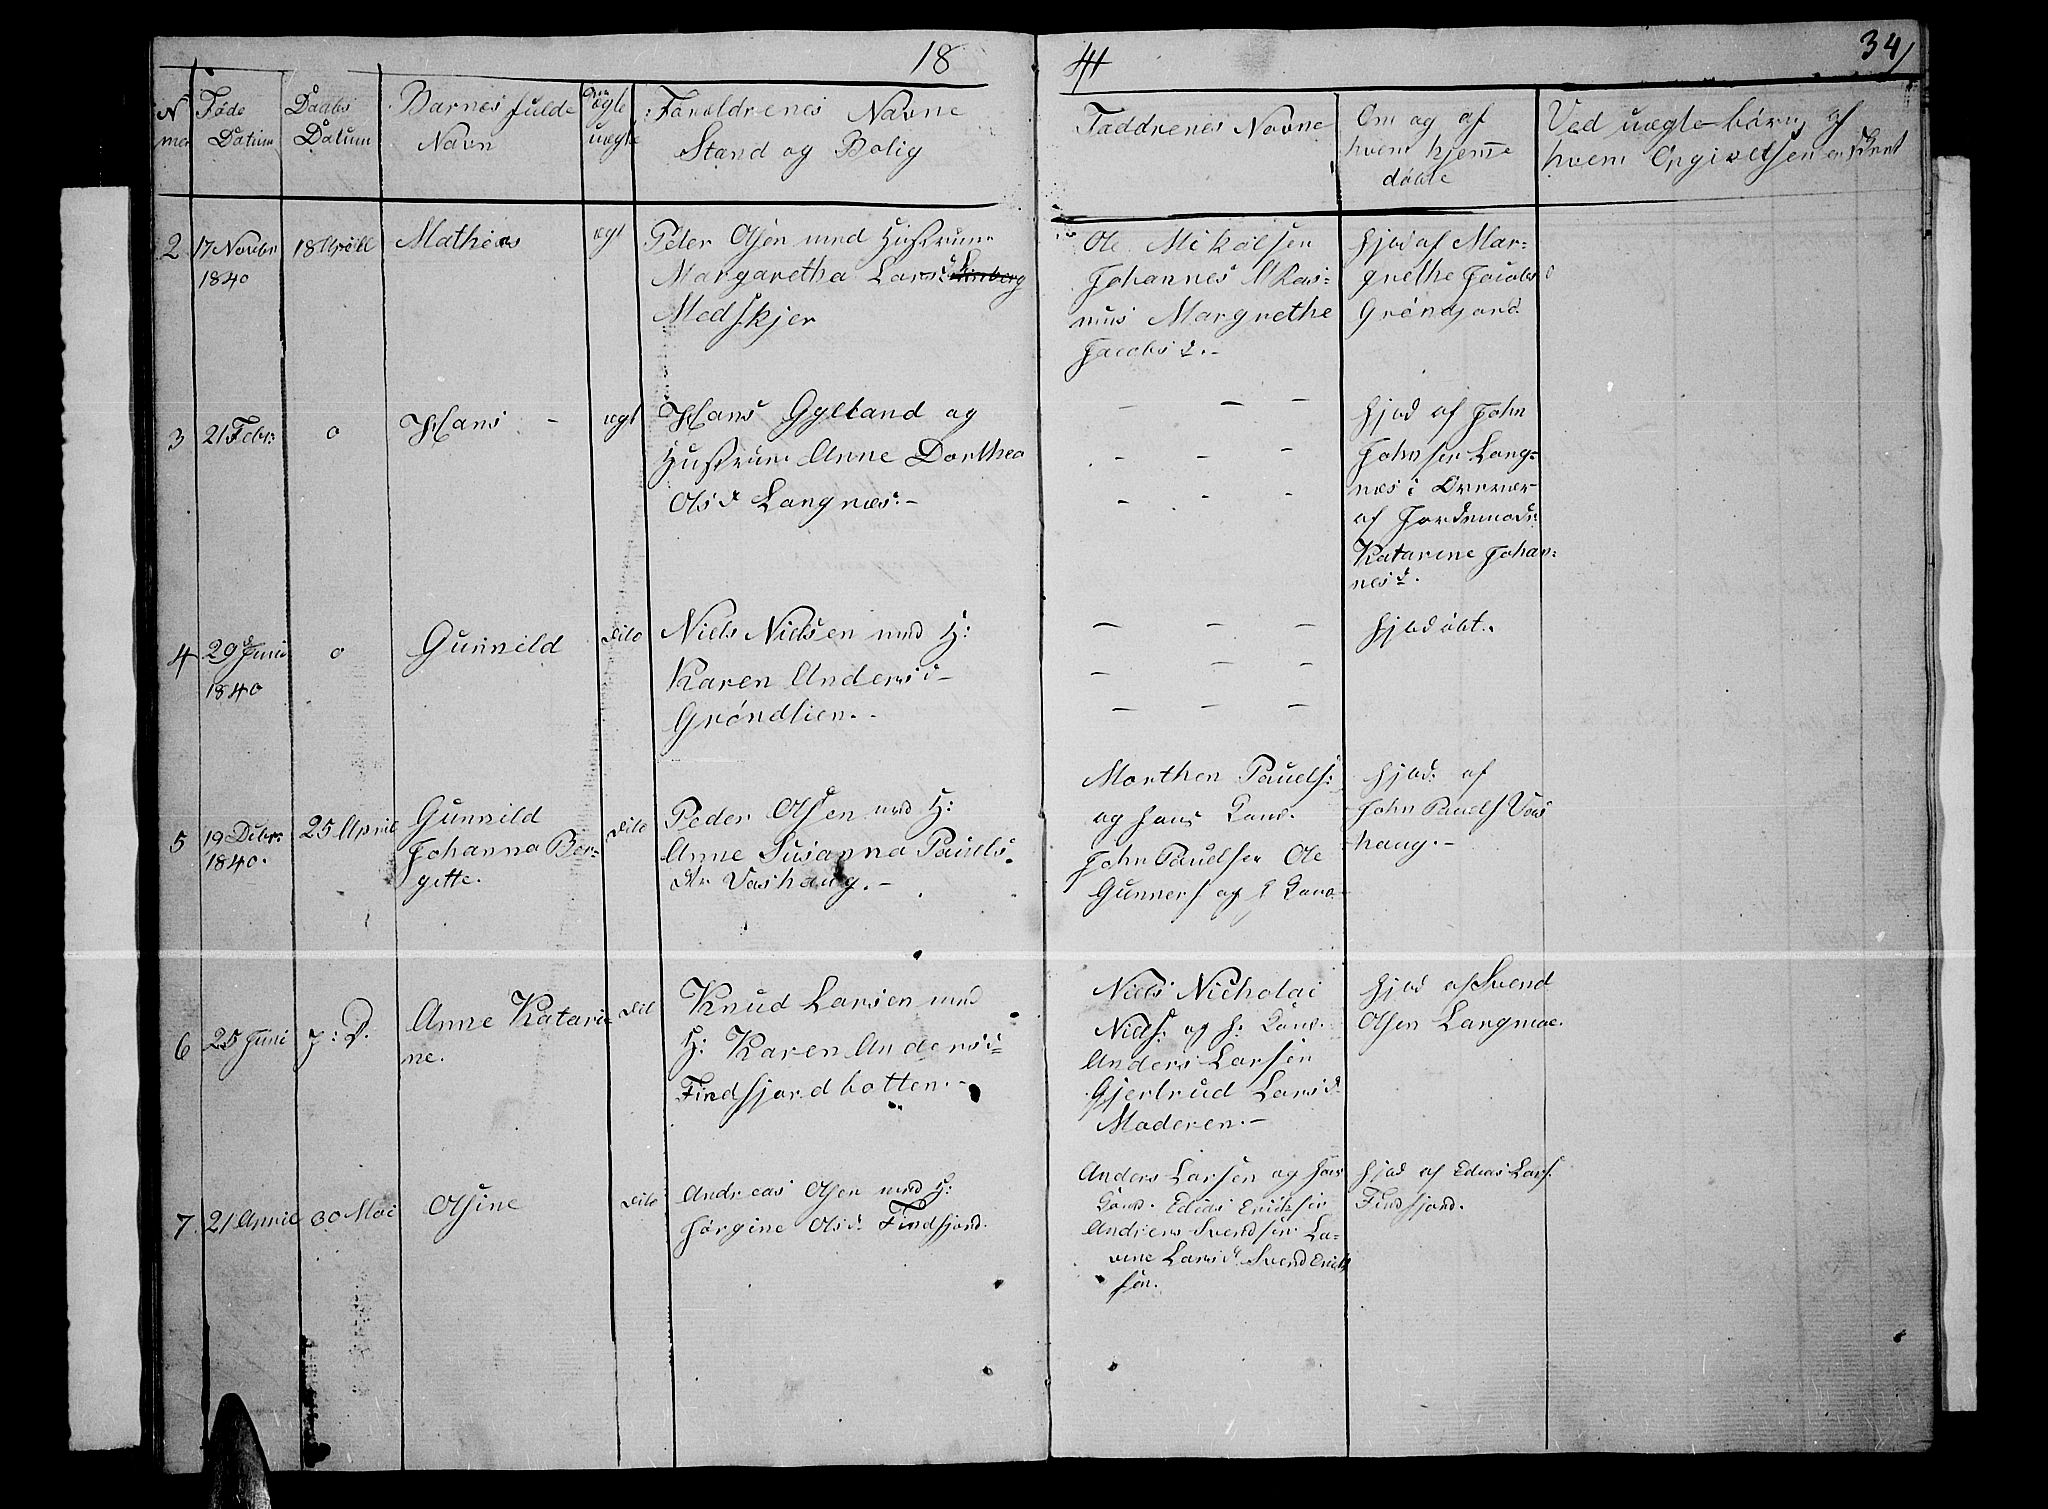 18
41
34
N mer
Føde Datum
Daabs Datum
Barnes fulde Navn
Om ægte uægte
Foreldrenes Navne
Stand og Bolig
Faddrenes Navne
Om og af
hvem hjemme
døbte
Ved uægte børn, af
hvem Opgivelsen er skeet
2
17 Novbr
1840
18 April
Mathias
ægt
Peter Olsen med Hustrue
Margaretha Larsd
Medskjer
Ole Mikalsen
Johannes
Margrethe
Jacobsd.-
Hjdb af Mar-
grethe Jacobsd
Grøndjord
3
21 Febr:
o
Hans -
ægt
Hans Gylland og
Hustrue Anne Dorthea
Olsd Langnæs.-
- - -
- - -
- - -
hjdb af John
Johnsen Lang-
næs i
af Jordemodr
Katarine Johan-
nesd.
4
29 Juni
1840
o
Gunnild
dito
Niels Nielsen med H:
Karen Anders:
Grøndlien.-
- - -
- - -
- - -
hjdbøbt.
5
19 Debr:
1840.
25 April
Gunnild
Johanna Ber-
gitte.
dito
Peder Olsen med H:
Anne Susanna Pauels-
dtr Vashaug.-
Morthen Pauels:
og hans Kone.
John Pauelsen Ole
Gunners og h Kone
hjdb: af
John Pauels Vas
haug.-
6
25 Juni
p: D.
Anne Katari-
ne.
dito
Knud Larsen med
H: Karen Anders:
Findfjordbotten.-
Niels Nicholai
Niels: og h: Kone.
Anders Larsen
Gjertrud Larsd
Moderen.-
hjdb af Svend
Olsen Langmoe.
7.
21 April
30 Mai
Olsine
dito
Andreas Olsen med H:
Jørgine Olsd. Findfjord.
Anders Larsen og hans
Kone. Edias Ericksen
Andreas Svendsen La-
vine Larsd. Svend Erick
sen.
hjdb af Edias Lars:
Findfjord.